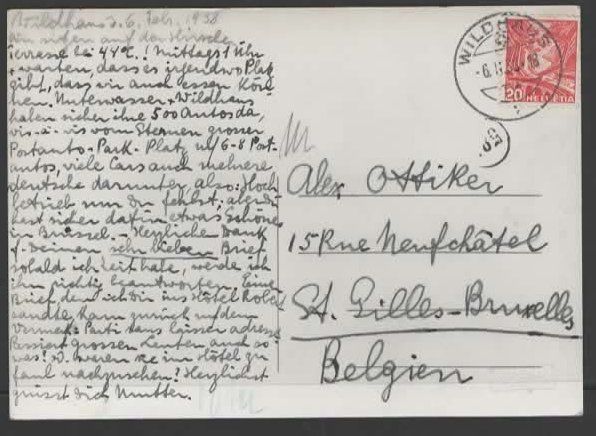 Wildhaus d. 6. Febr. 1938
wir sitzen auf der Hirschen
Terrasse bei 44°C.! Mittags 1 Uhr
+ warten, dass es irgendwo Platz
gibt, dass wir auch essen kön
nen. Unterwasser + Wildhaus
haben sicher ihre 500 Autos da,
vis-à-vis vom Sternen grosser
Postauto-Park-Platz m/ 6-8 Post-
autos, viele Cars auch mehrere
deutsche darunter, also: Hoch
betrieb nur Du fehlst, aber Du
hast sicher dafür etwas schönes
in Brüssel. - Herzlichen Dank
f. Deinen sehr lieben Brief
sobald ich Zeit habe, werde ich
ihn richtig beantworten. Eine
Brief, den ich Dir ins Hôtel
sandte, kam zurück m/ dem
Vermerk: Parti sans laisser adresse
Passiert grossen Leuten auch so
was! Od. waren sie im Hôtel zu
faul nachzusehen! Herzlichst
grüsst Dich Mutter.
WILDHAUS
-6.II.38-18
20 HELVETIA
Alex Ottiker
15 Rue Neufchâtel
St. Gilles-Bruxelles
Belgien